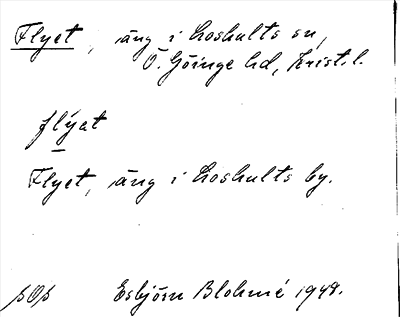 Flyet, äng i Loshults sn,
Ö. Göinge hd, Krist. l.
flýet
Flyet, äng i Loshults by.
Esbjörn Blohmé 1948.